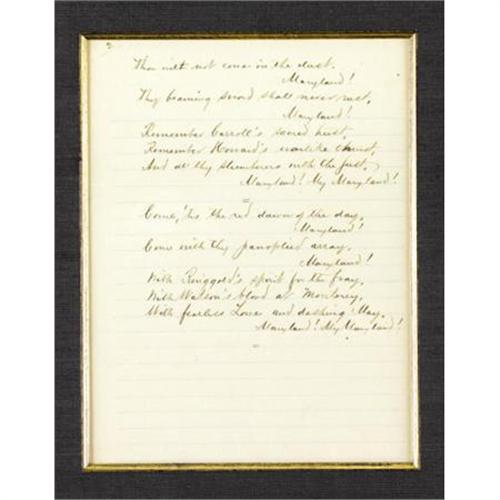 2
Thou wilt not cower in the dust,
Maryland!
Thy beaming sword shall never rust,
Maryland!
Remember Carroll's sacred trust,
Remember Howard's warlike thrust,
And all thy slumberers with the just,
Maryland! My Maryland!
Come, 'tis the red dawn of the day,
Maryland!
Come with thy panoplied array,
Maryland!
With Ringgold's spirit for the fray,
With Watson's blood at Monterey,
With fearless Lowe and dashing May,
Maryland! My Maryland!